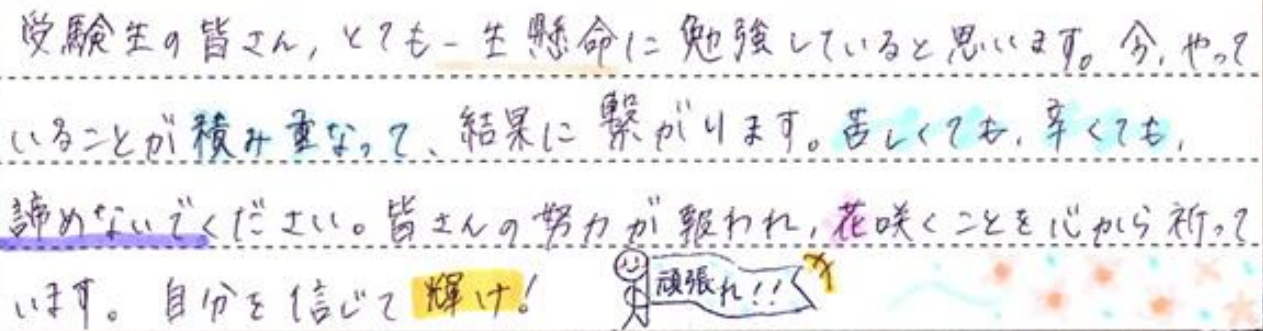 受験生の皆さん,とても一生懸命に勉強していると思います。今,やって
いることが積み重なって、結果に繋がります。苦しくても,辛くても,
諦めないでください。皆さんの努力が報われ,花咲くことを心から祈って
います。自分を信じて輝け!
頑張れ!!